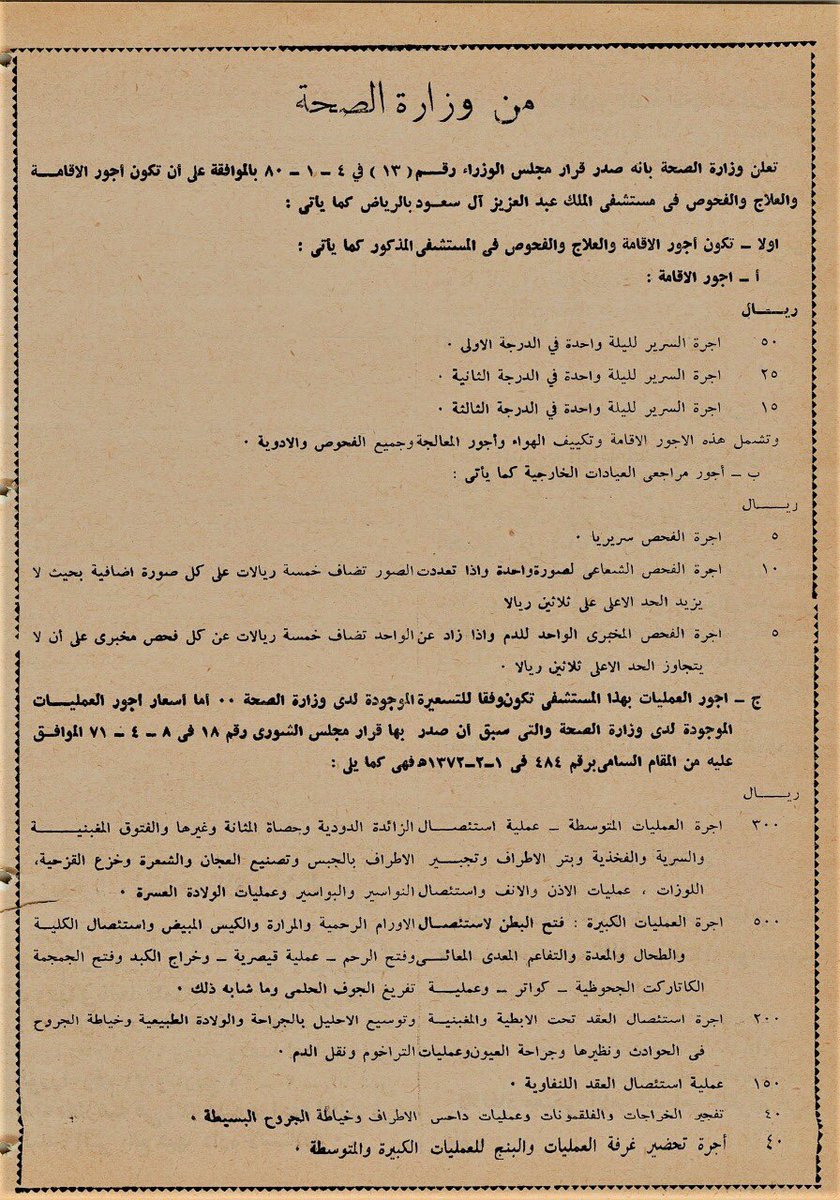 من وزارة الصحة
تعلن وزارة الصحة بانه صدر قرار مجلس الوزراء رقـــم ( ١٣ ) في ٤ – ١ – ٨٠ بالموافقة على أن تكون أجور الاقامـــة
والعلاج والفحوص فى مستشفى الملك عبد العزيز آل سعـود بالرياض كما يأتى :
اولا – تكون أجور الاقامة والعلاج والفحوص فى المستشفى المذكور كما يأتى :
أ – اجور الاقامة :
ريـــــال
٥٠ اجرة السرير لليلة واحدة في الدرجة الاولى ٠
٢٥ اجرة السرير لليلة واحدة في الدرجة الثانية ٠
١٥ اجرة السرير لليلة واحدة في الدرجة الثالثة ٠
وتشمل هذه الاجور الاقامة وتكييف الهواء وأجور المعالجة وجميع الفحوص والادوية ٠
ب – أجور مراجعى العيادات الخارجية كما يأتى :
ريـــــال
٥ اجرة الفحص سريريا ٠
١٠ اجرة الفحص الشعاعى لصورة واحدة واذا تعددت الصور تضاف خمسة ريالات على كل صورة اضافية بحيث لا
يزيد الحد الاعلى على ثلاثين ريالا
٥ اجرة الفحص المخبرى الواحد للدم واذا زاد عن الواحد تضاف خمسة ريالات عن كل فحص مخبرى على أن لا
يتجاوز الحد الاعلى ثلاثين ريالا ٠
ج – اجور العمليات بهذا المستشفى تكون وفقا للتسعيرة الموجودة لدى وزارة الصحة ٠٠ اما اسعار اجور العمليـــات
الموجودة لدى وزارة الصحة والتى سبق ان صدر بها قرار مجلس الشورى رقم ١٨ فى ٨ – ٤ – ٧١ الموافـق
عليه من المقام السامى برقم ٤٨٤ فى ١–٢–١٣٧٢ه فهى كما يلى :
ريـــــال
٣٠٠ اجرة العمليات المتوسطة – عملية استئصـــال الزائدة الدودية وحصاة المثانة وغيرها والفتوق المغبنيـــة
والسرية والفخذية وبتر الاطراف وتجبـــير الاطراف بالجبس وتصنيع العجان والشعرة وخزع القزحية،
اللوزات ، عمليات الاذن والانف واستئصال النواسير والبواسير وعمليات الولادة العسرة ٠
٥٠٠ اجرة العمليات الكبيرة : فتح البطن لاستئصـــال الاورام الرحمية والمرارة والكيس المبيض واستئصال الكلية
والطحال والمعدة والتفاعم المعدى المعائـــى وفتح الرحم – عملية قيصرية – وخراج الكبد وفتح الجمجمة
الكاتاركت الجحوظية – كواتر – وعمليـــة تفريغ الجوف الحلمى وما شابه ذلك ٠
٢٠٠ اجرة استئصال العقد تحت الابطية والمغبنيـــة وتوسيع الاحليل بالجراحة والولادة الطبيعية وخياطة الجروح
فى الحوادث ونظيرها وجراحة العيون وعمليات التراخوم ونقل الدم ٠
١٥٠ عملية استئصال العقد اللنفاوية ٠
٤٠ تفجير الخراجات والفلقمونات وعمليات داحس الاطراف وخياطة الجروح البسيطة ٠
٤٠ أجرة تحضير غرفة العمليات والبنج للعمليات الكبيرة والمتوسطة ٠